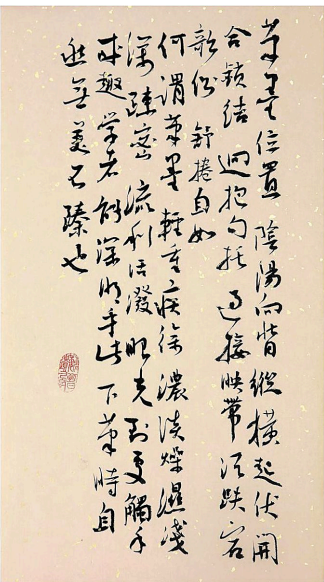 筆墨位置 陰陽向背 縱橫起伏 開
合鎖結 迴抱勾托 過接映帶 須跌宕
欹側 舒捲自如
何謂筆墨 輕重疾徐 濃淡燥濕 淺
深疎密 流利活潑 眼光到處 觸手
成趣 学者能深明乎此 下筆時自
然無美不臻也